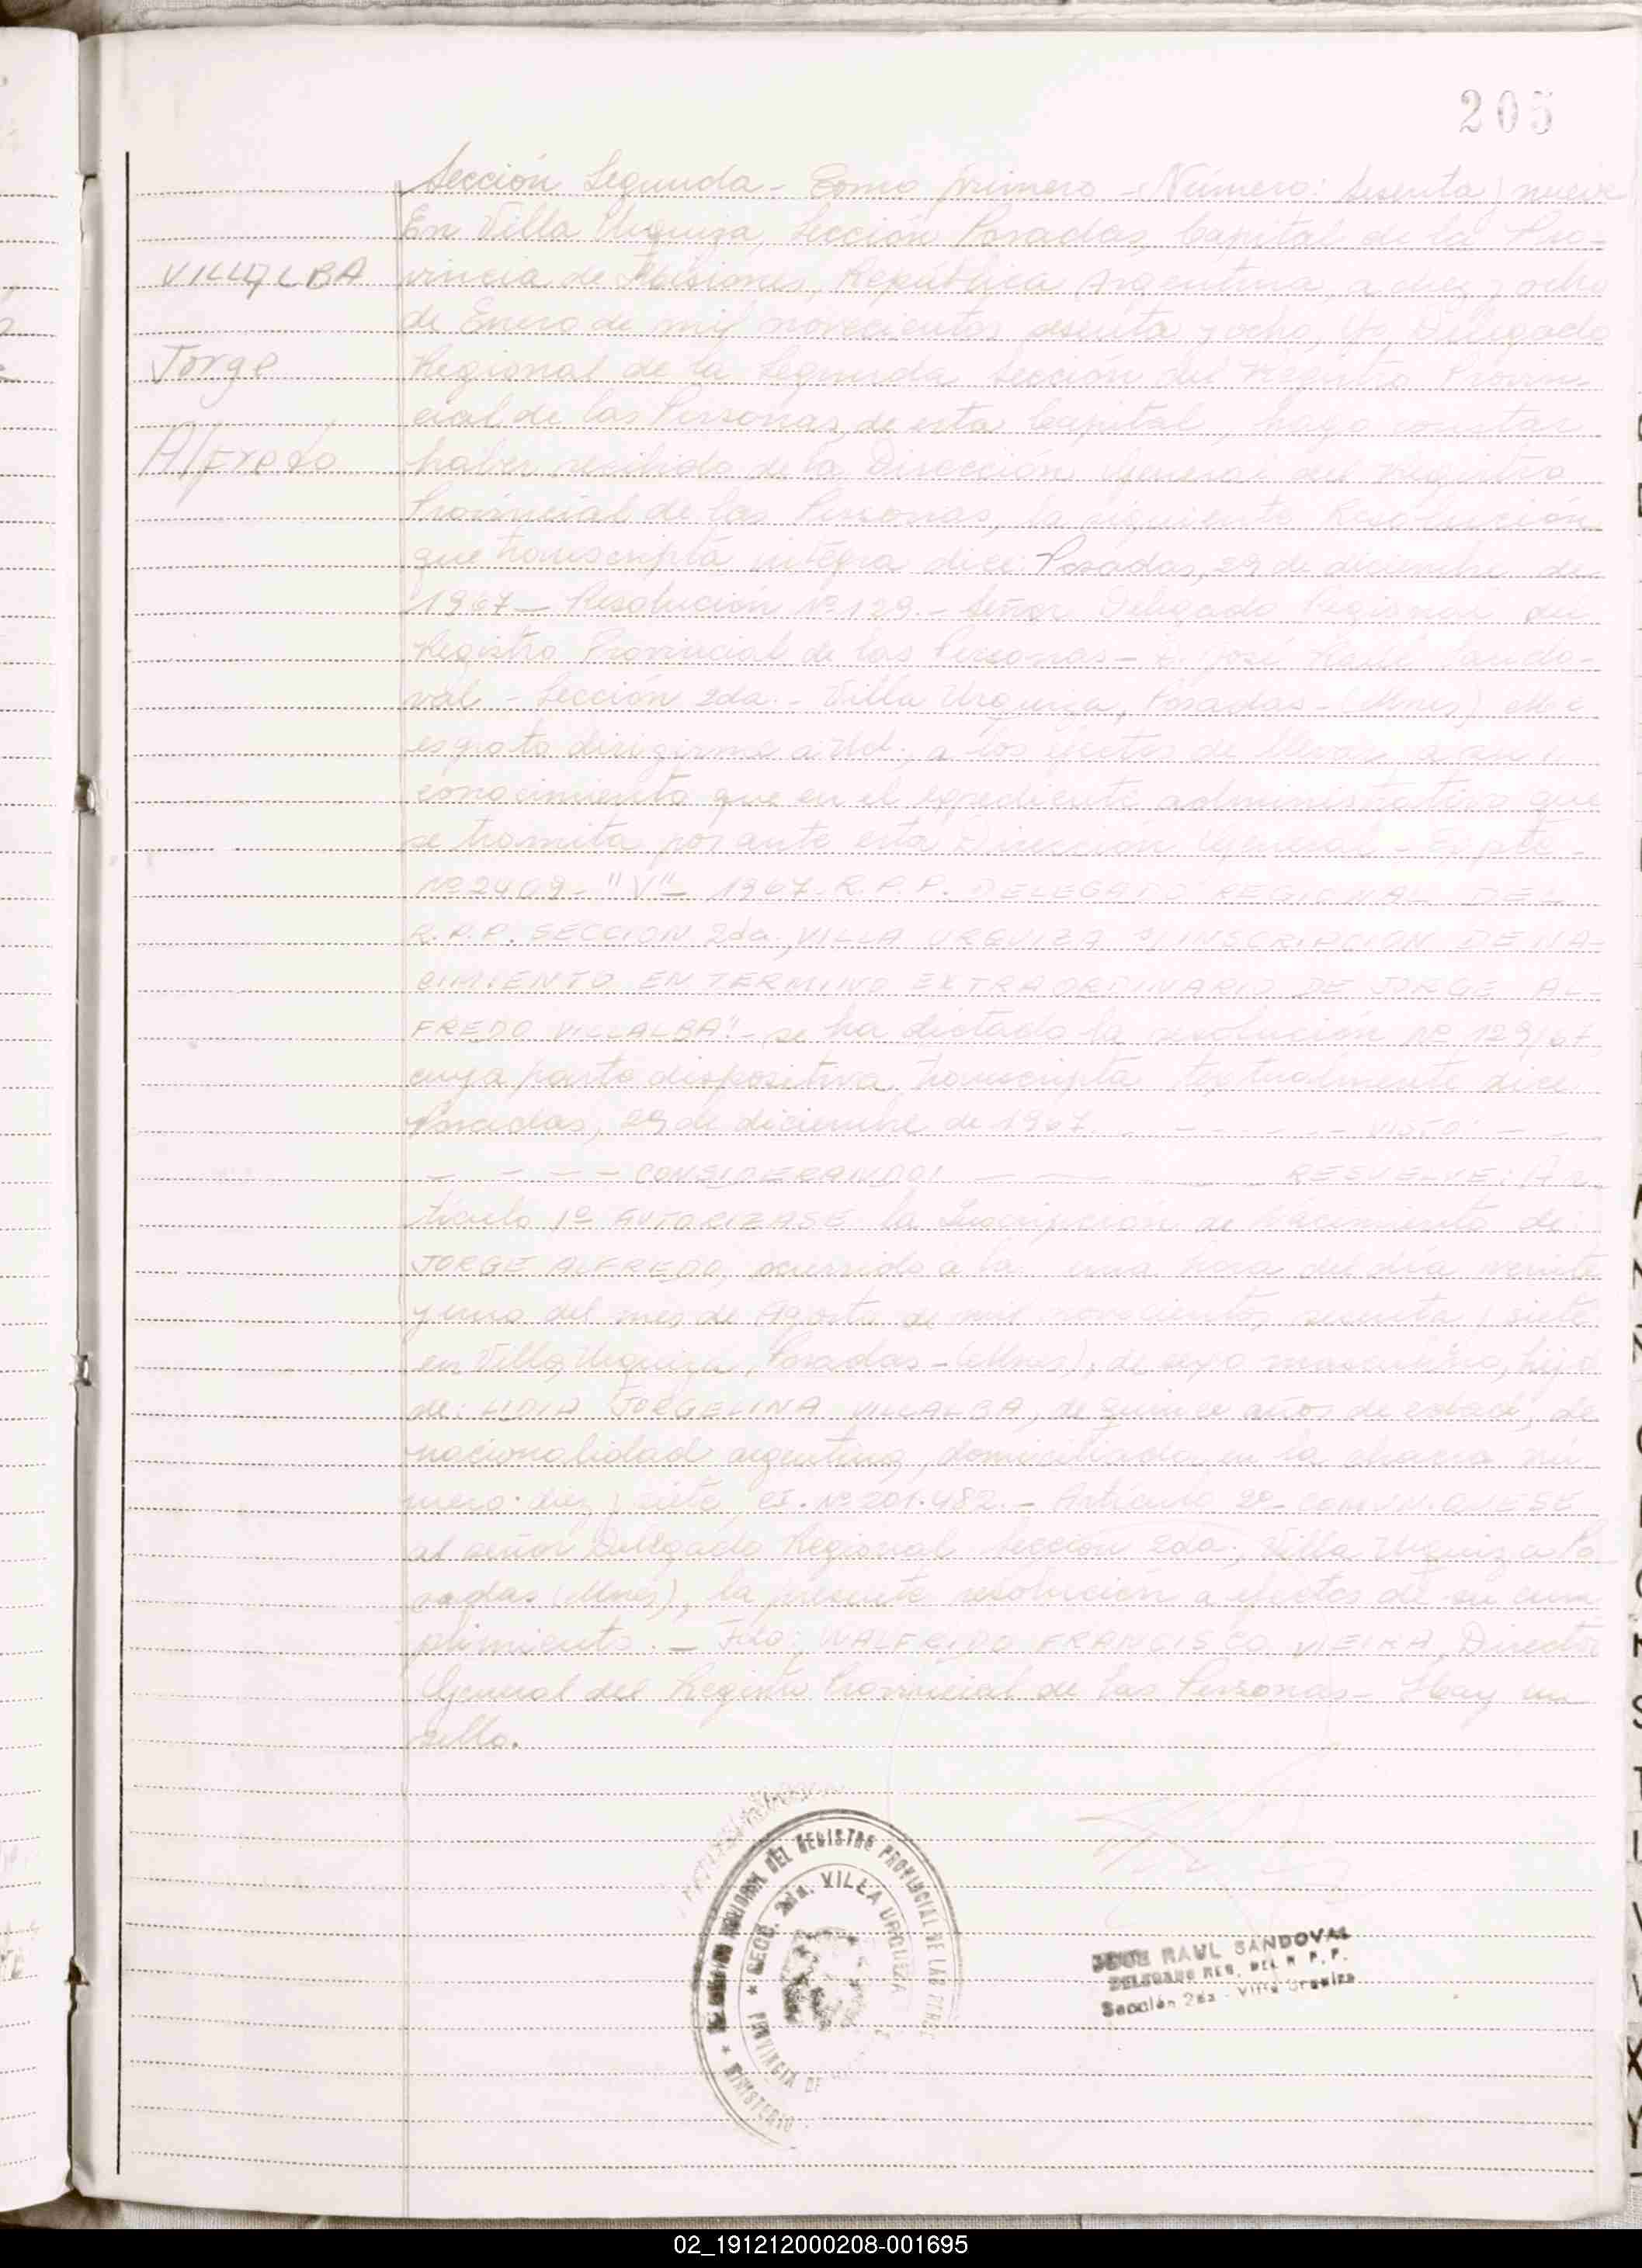 205
Sección Segunda - Tomo primero - Número: Sesenta y nueve
En Villa Urquiza, Sección Posadas, Capital de la Pro-
VILLALBA
vincia de Misiones, República Argentina, a diez y ocho
de Enero de mil novecientos sesenta y ocho, Yo, Delegado
Jorge
Regional de la Segunda Sección del Registro Provin-
cial de las Personas, de esta Capital, hago constar
Alfredo
haber recibido de la Dirección General del Registro
Provincial de las Personas, la siguiente Resolución
que transcripta íntegra dice: Posadas, 29 de diciembre de
1967 - Resolución Nº 129 - Señor Delegado Regional del
Registro Provincial de las Personas - D. José Raúl Sando-
val - Sección 2da. - Villa Urquiza, Posadas - (Mnes) Me
es grato dirigirme a Ud., a los efectos de llevar a su
conocimiento que en el expediente administrativo que
se tramita por ante esta Dirección General - Expte
Nº 2409 - "V" - 1967 - R.P.P. DELEGADO REGIONAL DEL
R.P.P. SECCION 2da., VILLA URQUIZA S/INSCRIPCION DE NA-
CIMIENTO EN TERMINO EXTRAORDINARIO DE JORGE AL-
FREDO VILLALBA" - se ha dictado la resolución Nº 129/67,
cuya parte dispositiva, transcripta textualmente dice
Posadas, 29 de diciembre de 1967. - - - - - VISTO: - - -
- - - - CONSIDERANDO: - - - RESUELVE: Ar-
tículo 1º AUTORIZASE la Inscripción de nacimiento de
JORGE ALFREDO, ocurrido a la una hora del día veinte
y uno del mes de Agosto de mil novecientos sesenta y siete
en Villa Urquiza, Posadas - (Mnes), de sexo masculino, hijo
de: LIDIA JORGELINA VILLALBA, de quince años de edad, de
nacionalidad argentina, domiciliada en la chacra nú-
mero diez y siete, CI. Nº 201.482. - Artículo 2º - COMUNIQUESE
al señor Delegado Regional Sección 2da., Villa Urquiza Po
sadas (Mnes), la presente resolución a efectos de su cum
plimiento. - Fdo: WALFRIDO FRANCISCO VIEIRA, Director
General del Registro Provincial de las Personas - Hay un
sello.
REGIONAL DEL REGISTRO PROVINCIAL DE LAS PERS
SECC. 2da. VILLA URQUIZA
PROVINCIA DE
MINISTERIO
JOSE RAUL SANDOVAL
DELEGADO REG. DEL R. P. P.
Sección 2da - Villa Urquiza
02_191212000208-001695